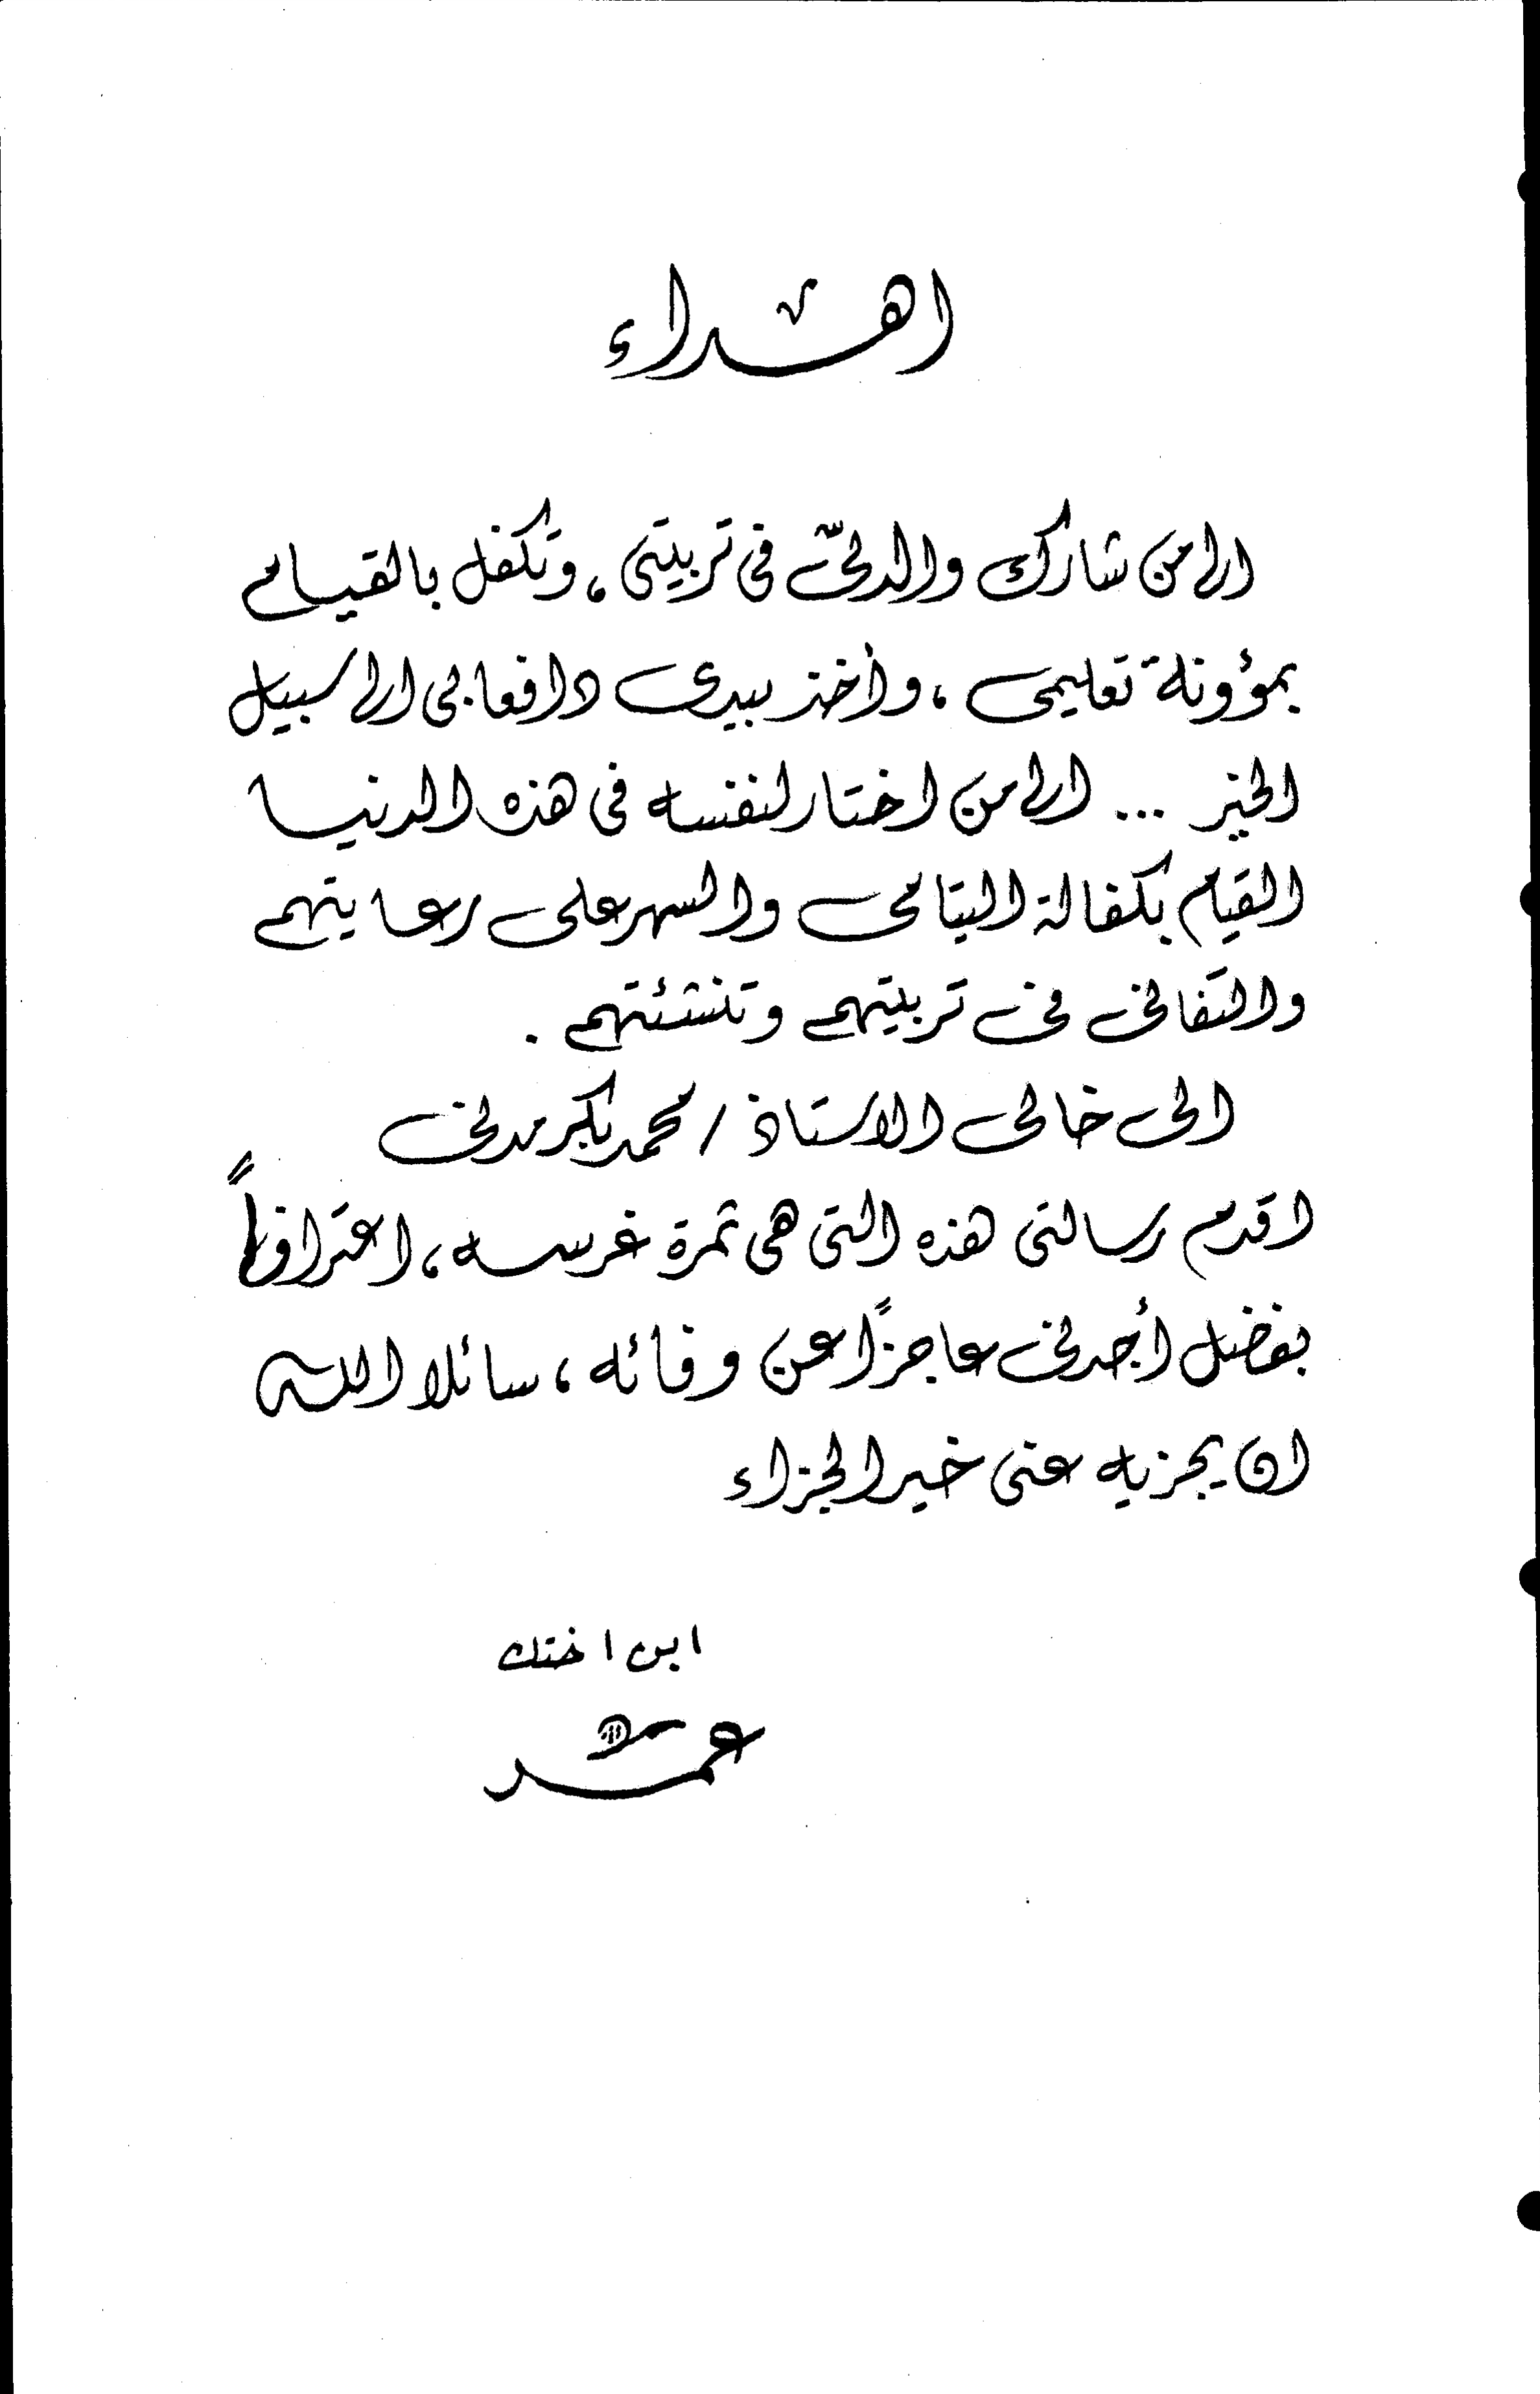 اهداء
الى من شارك والديّ فى تربيتى ، وتكفل بالقيام
بمؤونة تعليمى ، وأخذ بيدى دافعا بى الى سبيل
الخير ... الى من اختار لنفسه فى هذه الدنيا
القيام بكفالة اليتامى والسهر على رعايتهم
والتفانى فى تربيتهم وتنشئتهم .
الى خالى الاستاذ / محمد بكر مدنى
اقدم رسالتى هذه التى هى ثمرة غرسه ، اعترافاً
بفضل أجدنى عاجزاً عن وفائه ، سائلا الله
ان يجزيه عنى خير الجزاء
ابن اختك